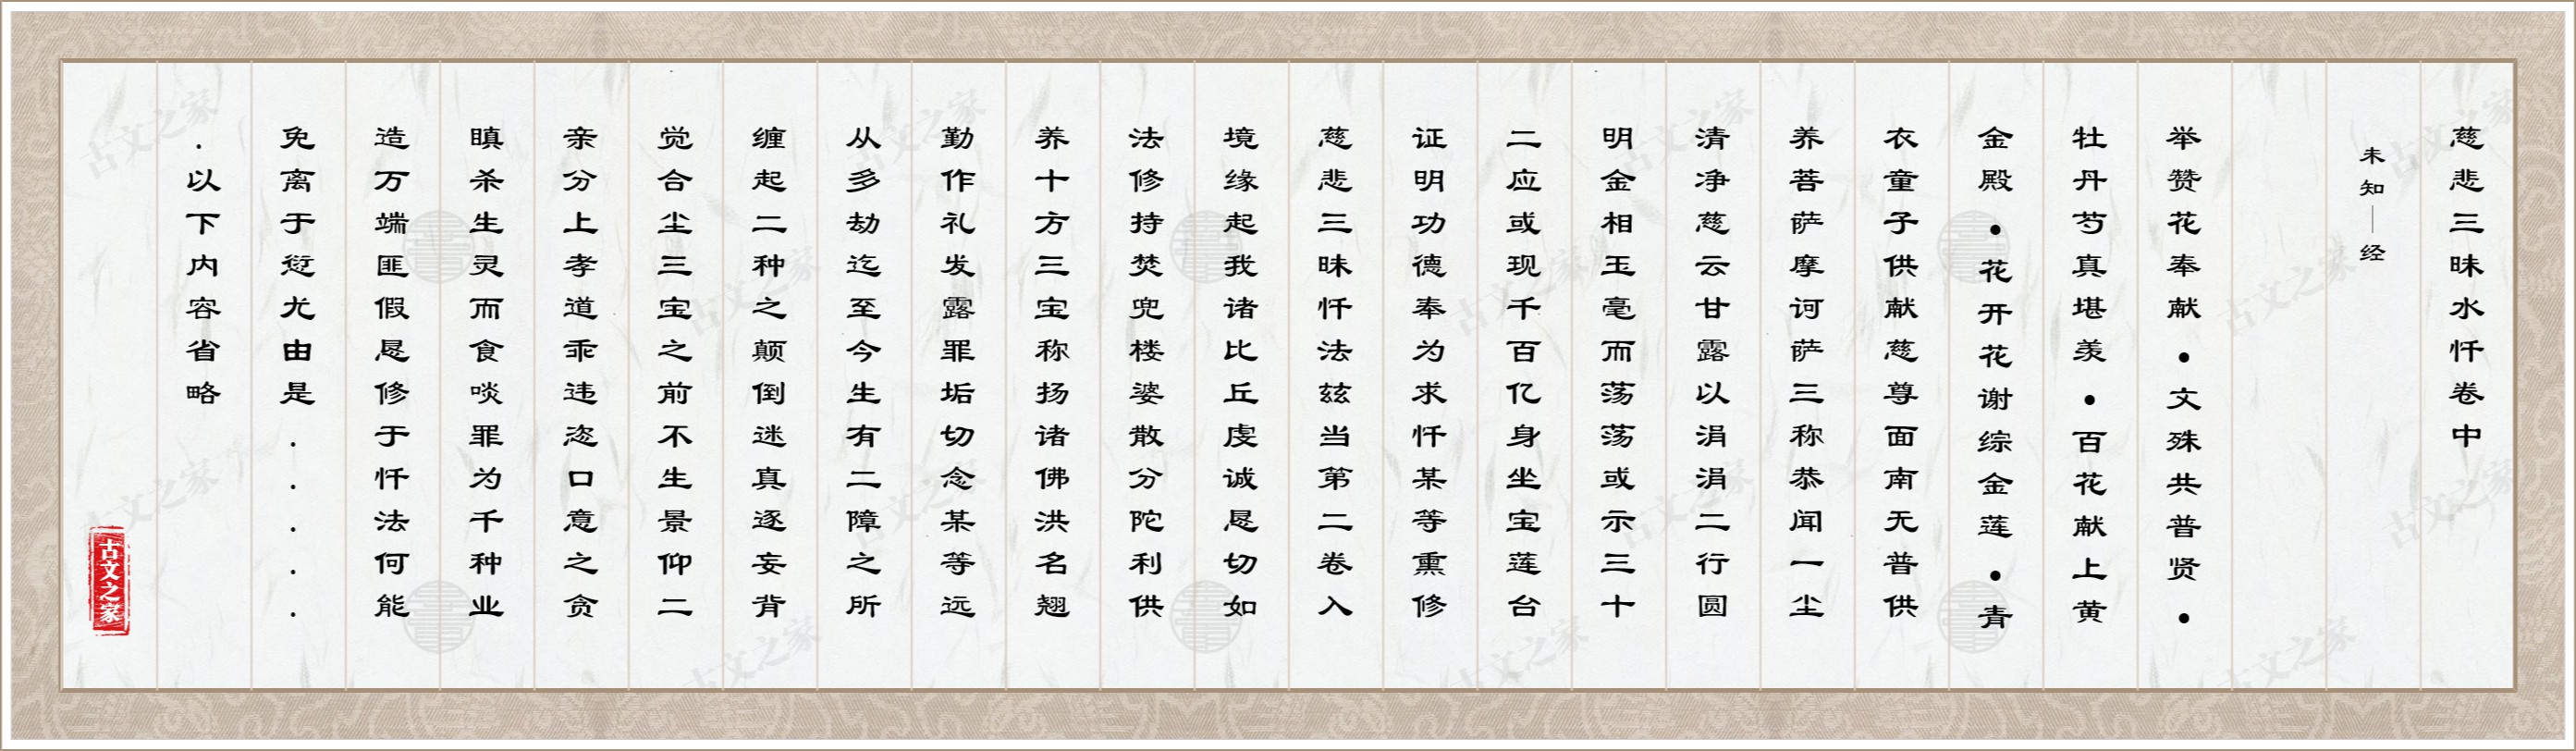 慈悲三昧水忏卷中
未知—经
举赞花奉献•文殊共普贤•
牡丹芍真堪羡•百花献上黄
金殿•花开花谢综金莲•青
衣童子供献慈尊面南无普供
养菩萨摩诃萨三称恭闻一尘
清净慈云甘露以涓涓二行圆
明金相玉毫而荡荡或示三十
二应或现千百亿身坐宝莲台
证明功德奉为求忏某等熏修
慈悲三昧忏法兹当第二卷入
境缘起我诸比丘虔诚恳切如
法修持焚兜楼婆散分陀利供
养十方三宝称扬诸佛洪名翘
勤作礼发露罪垢切念某等远
从多劫迄至今生有二障之所
缠起二种之颠倒迷真逐妄背
觉合尘三宝之前不生景仰二
亲分上孝道乖违恣口意之贪
瞋杀生灵而食啖罪为千种业
造万端匪假恳修于忏法何能
免离于愆尤由是.....
.以下内容省略
古文之家